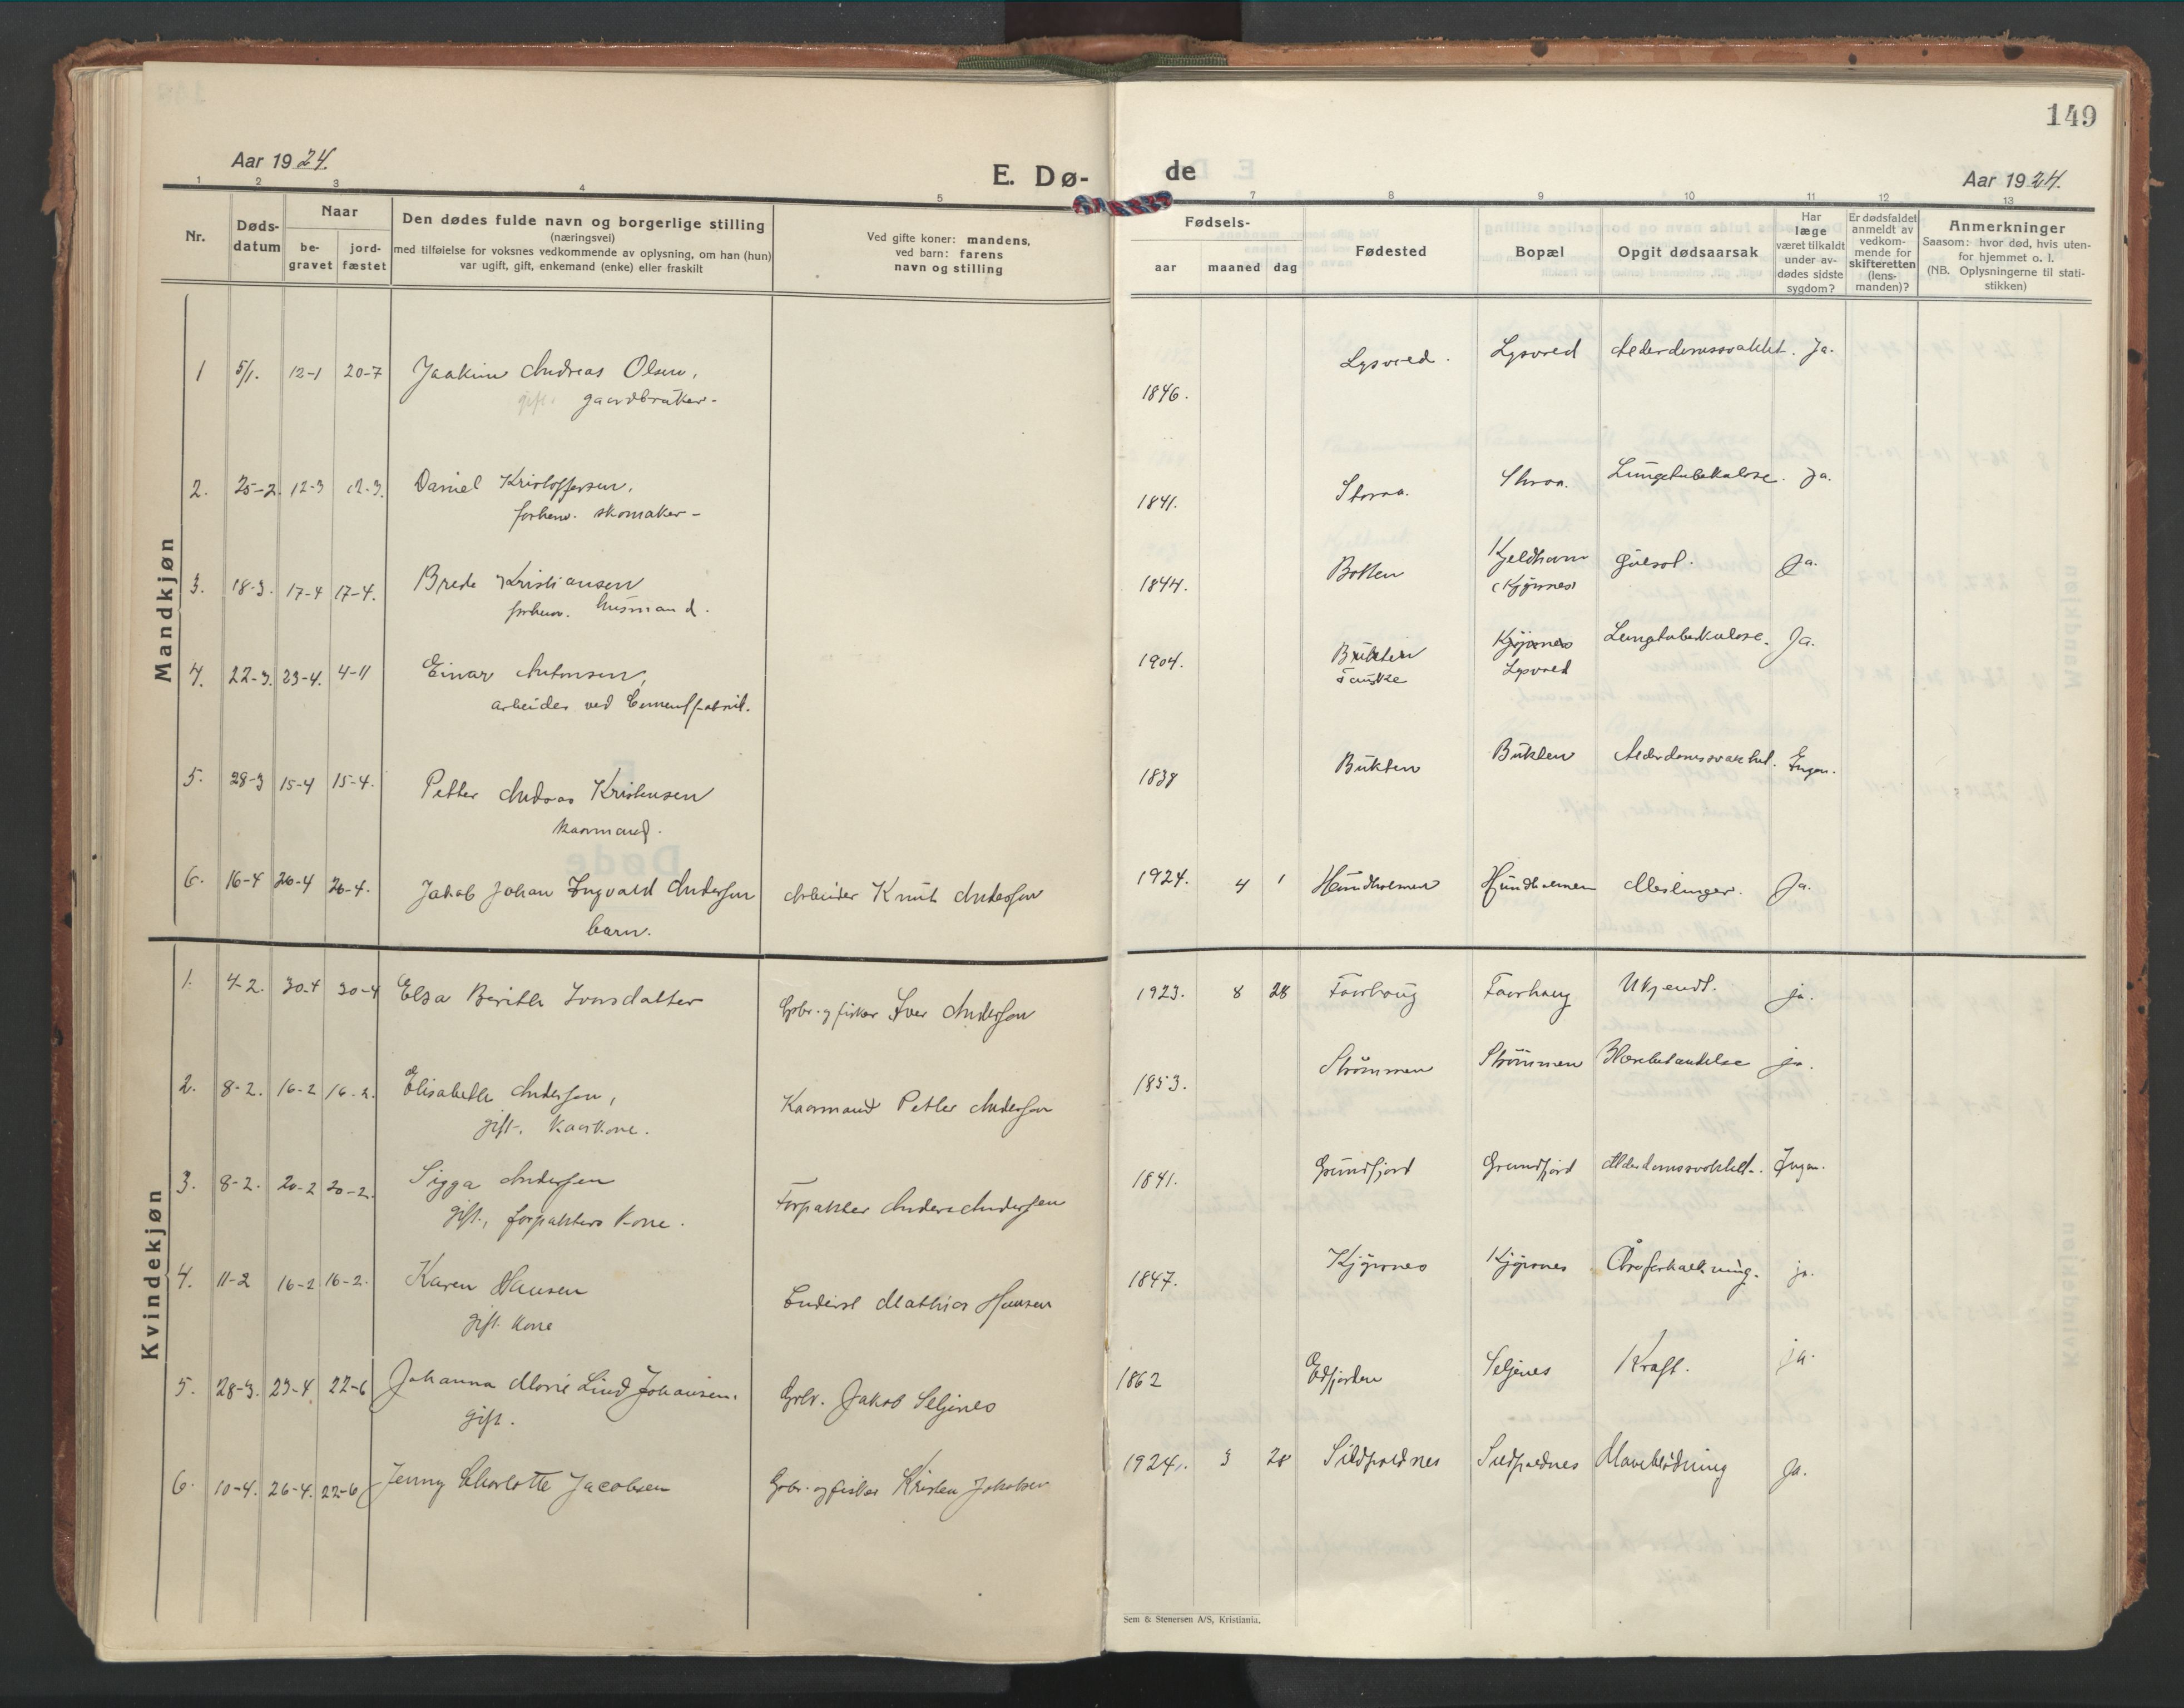 149
Aar 1924.
E. Dø-
de
Aar 1924.
1 2 3 4 5 7 8 9 10 11 12 13
Nr.
Døds-
datum
Naar
be-
gravet
jord-
fæstet
Den dødes fulde navn og borgerlige stilling
(næringsvei)
med tilføielse for voksnes vedkommende av oplysning, om han (hun)
var ugift, gift, enkemand (enke) eller fraskilt
Ved gifte koner: mandens,
ved barn: farens
navn og stilling
Fødsels-
aar maaned dag
Fødested
Bopæl
Opgit dødsaarsak
Har
læge
været tilkaldt
under av-
dødes sidste
sygdom?
Er dødsfaldet
anmeldt av
vedkom-
mende for
skifteretten
(lens-
manden)?
Anmerkninger
Saasom: hvor død, hvis uten-
for hjemmet o. l.
(NB. Oplysningerne til stati-
stikken)
Mandkjøn
1 5/1. 12-1 20-7 Joakim Andreas Olsen, 1846. Lysvold. Lysvold Alderdomssvakhet. Ja.
gift. gaardbruker-
2. 25-2. 12-3 12-3. Daniel Kristoffersen, 1841. Storaa. Storaa. Lungetuberkulose. Ja.
forhenv. skomaker-
3. 18-3. 17-4 17-4. Brede Kristiansen 1844. Botten Kjeldhavn Gulsot. Ja.
forhenv. husmand. (Kjøpsnes)
4. 22-3. 23-4. 4-11 Einar Antonsen, 1904. Bukten Kjøpsnes Lungetuberkulose. Ja.
arbeider ved Cementfabrik. Tanske Lysvold
5. 28-3 15-4 15-4. Petter Andreas Kristensen 1838 Bukten Bukten Alderdomssvakhet. Ingen.
kaarmand.
6. 16-4 26-4 26-4. Jakob Johan Ingvald Andersen Arbeider Knut Andersen 1924. 4 1 Hundholmen Hundholmen Meslinger. Ja.
barn.
Kvindekjøn
1. 4-2. 30-4 30-4 Elsa Berith Iversdatter Gbr. og fisker Iver Andersen 1923. 8 28 Taarhaug Taarhaug Ukjendt. ja.
2. 8-2. 16-2 16-2. Elisabeth Andersen, Kaarmand Petter Andersen 1853. Strømmen Strømmen Blærebetændelse ja.
gift. kaarkone.
3. 8-2. 20-2 20-2. Sigga Andersen Forpakter Anders Andersen 1841. Grundfjord Grundfjord Alderdomssvakhet. Ingen.
gift., forpakters kone.
4. 11-2 16-2 16-2. Karen Hansen Inderst Mathias Hansen 1847. Kjøpsnes Kjøpsnes Åreforkalkning. ja.
gift. kone
5. 28-3. 23-4. 22-6 Johanna Marie Lind Johansen. Gbr. Jakob Seljenes 1862 Edfjorden Seljenes Kræft. ja.
gift.
6. 10-4. 26-4. 22-6 Jenny Charlotte Jacobsen Gbr. og fisker Kristen Jakobsen 1924. 3 28 Sildpoldnes Sildpoldnes Maveblødning Ja.
Sem & Stenersen A/S, Kristiania.